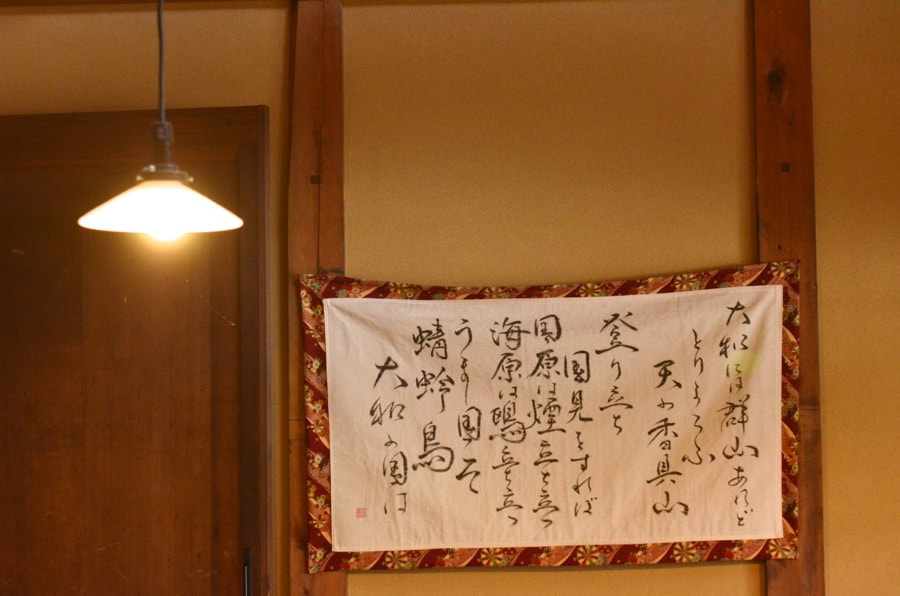 大和には群山あれど
とりよろふ
天の香具山
登り立ち
国見をすれば
国原は煙立ち立つ
海原は鴎立ち立つ
うまし国そ
蜻蛉島
大和の国は